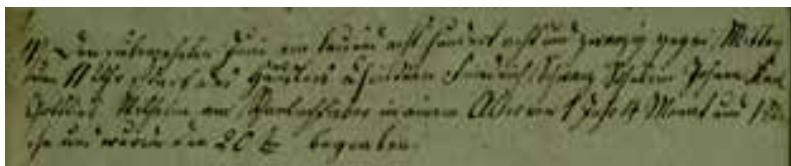 Den siebenzehnten Juni ein tausend acht hundert acht und zwanzig gegen Mittag
um 11 Uhr starb des Häuslers Friedrich Johann Karl
Gottlieb Wilhelm am Scharlachfieber in einem Alter von 1 Jahr 4 Monat und 1 Wo-
che und wurde den 20 begraben.